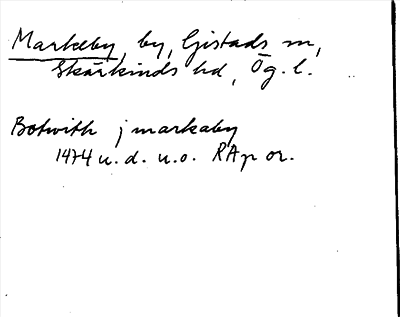 Markeby, by, Gistads sn,
Skärkinds hd, Ög. l.
Botwith j markaby
1474 u. d. u. o. RAp or.